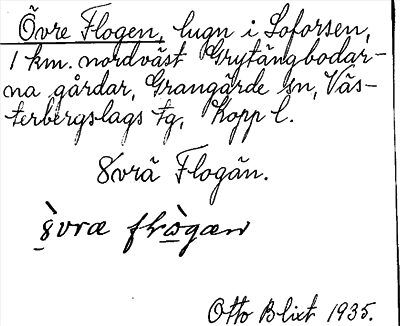 Övre Flogen, lugn i Loforsen,
1 km. nordväst Grytängbodar-
na gårdar, Grangärde sn, Väs-
terbergslags tg, Kopp. l.
8vrä Flogän.
Otto Blixt 1935.